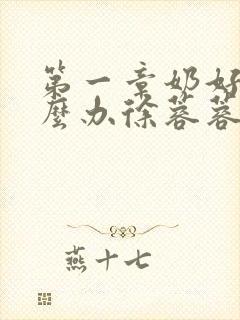 第一章奶好
麼办徐蓉蓉
燕十七